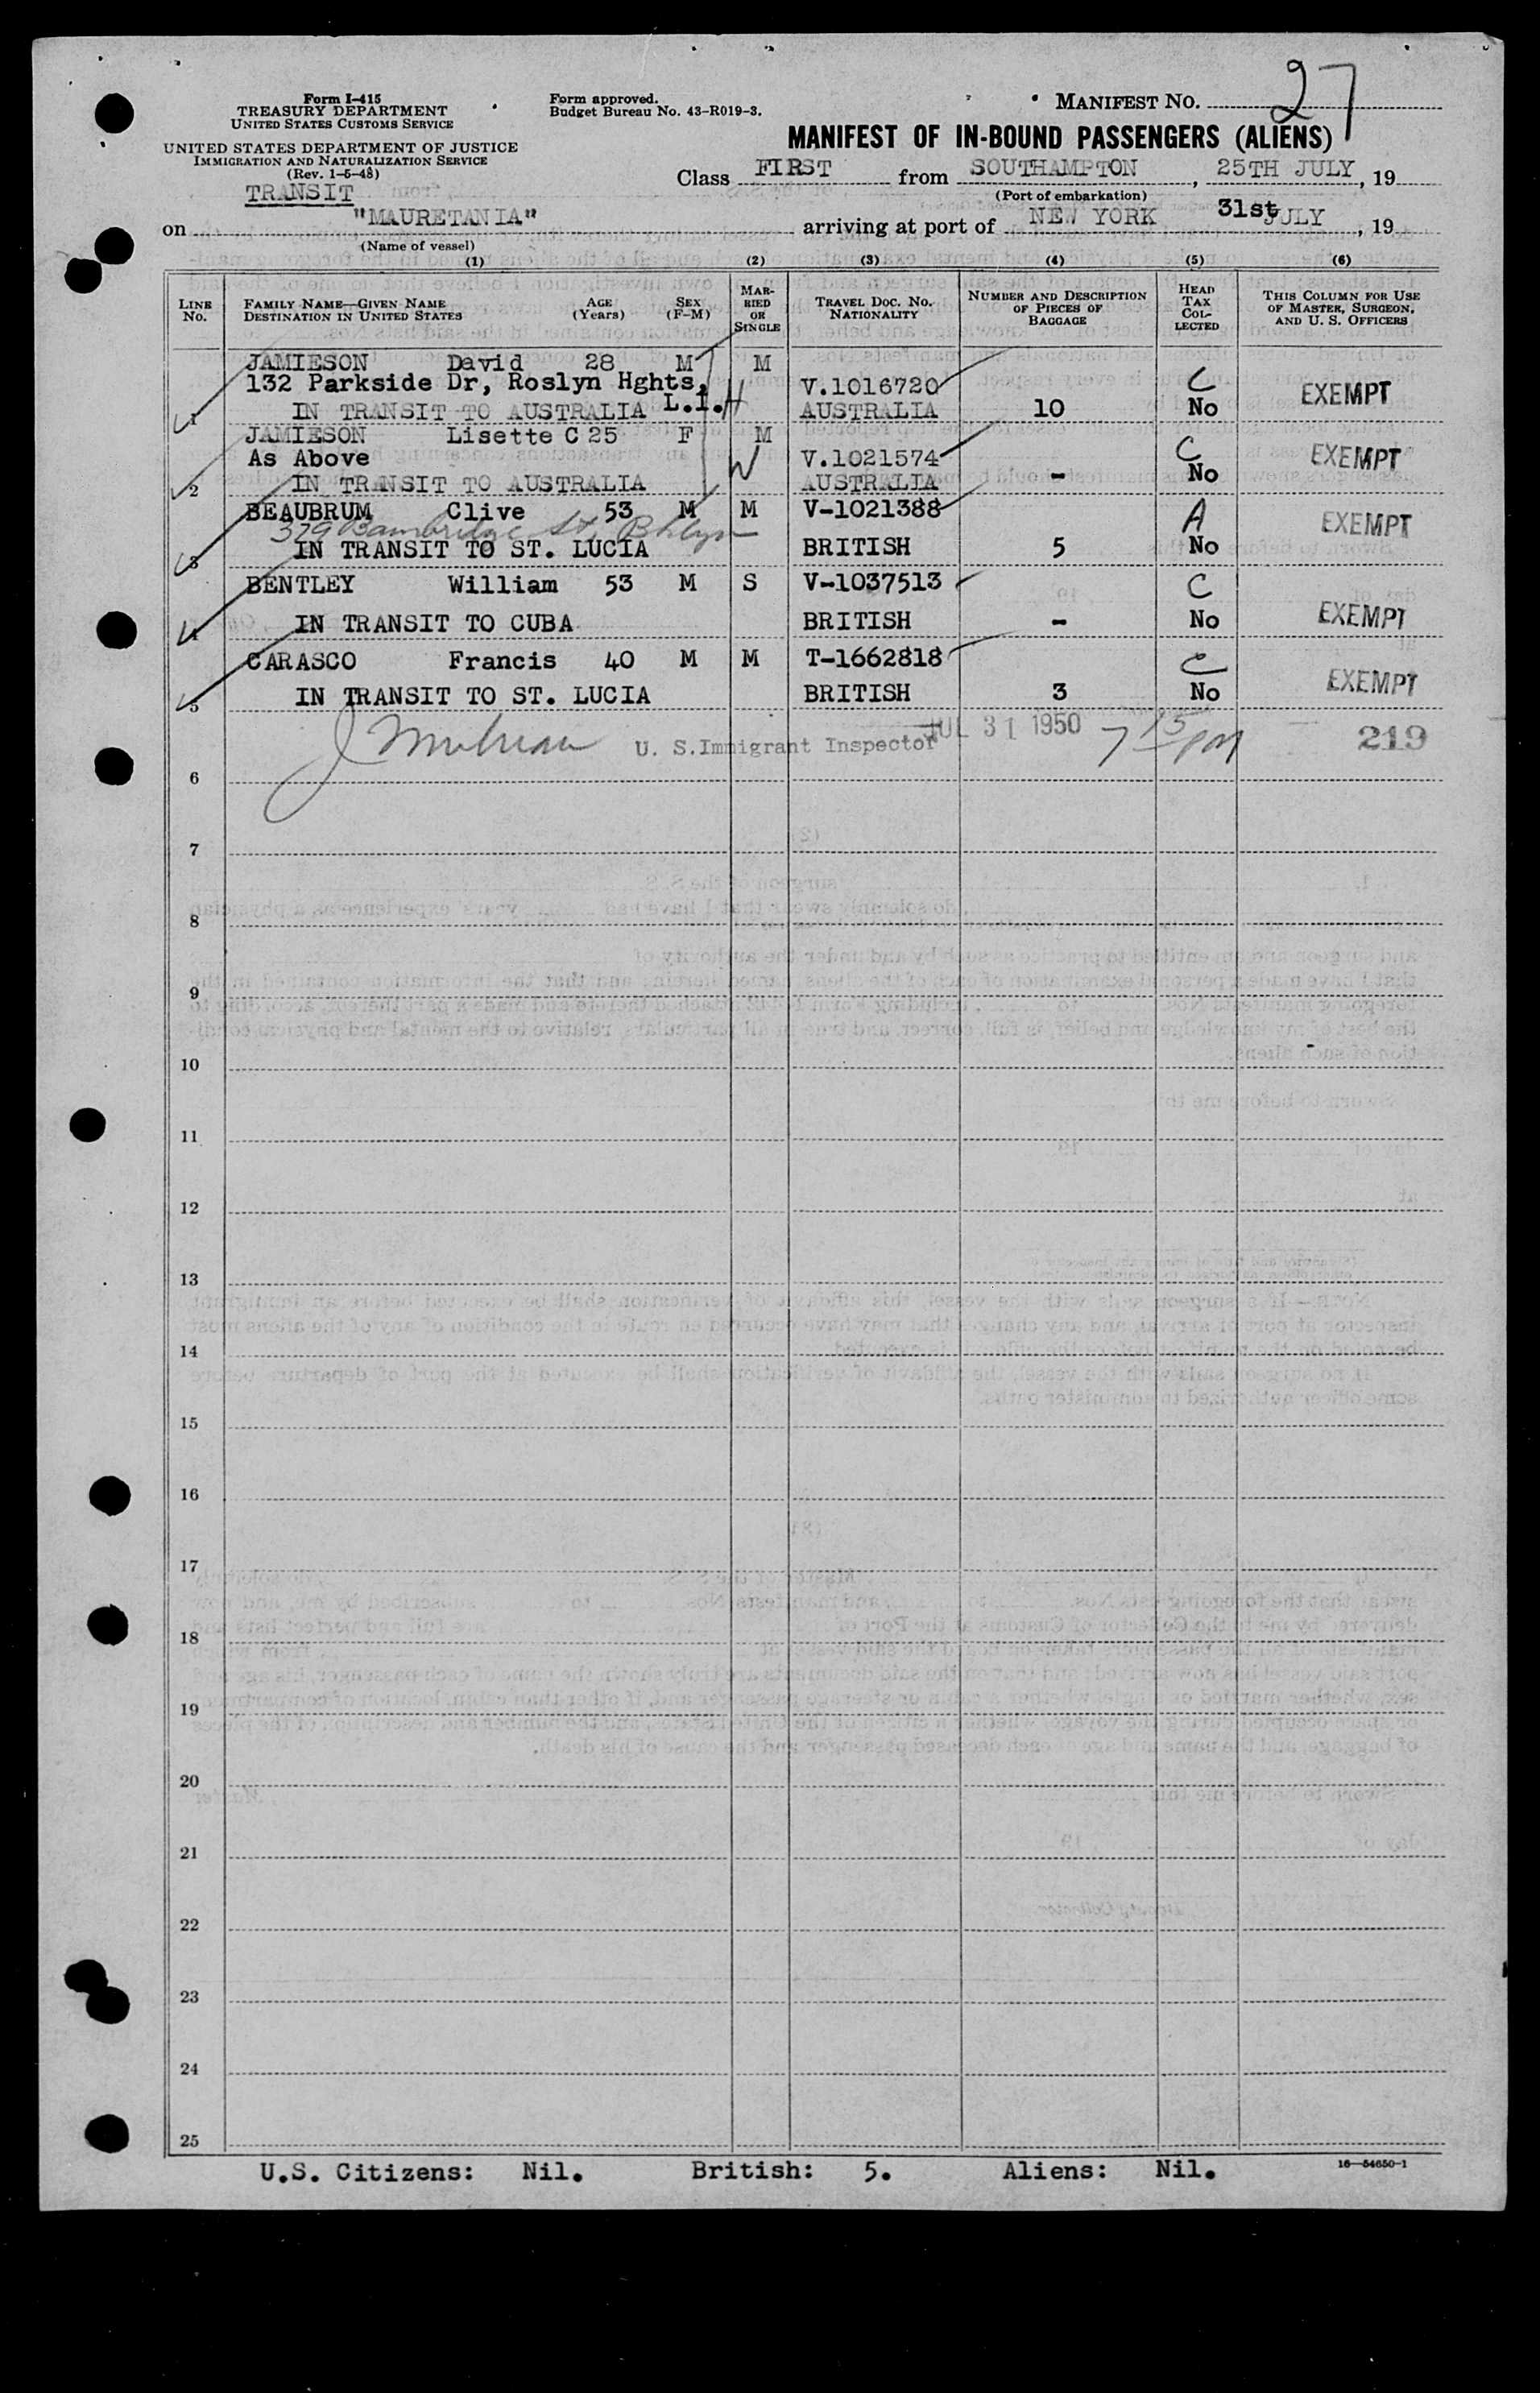 Form I-415
TREASURY DEPARTMENT
UNITED STATES CUSTOMS SERVICE
UNITED STATES DEPARTMENT OF JUSTICE
IMMIGRATION AND NATURALIZATION SERVICE
(Rev. 1-5-48)
Form approved.
Budget Bureau No. 43-R019-3.
MANIFEST NO. 27
MANIFEST OF IN-BOUND PASSENGERS (ALIENS)
TRANSIT
Class FIRST from SOUTHAMPTON, 25TH JULY, 19
(Port of embarkation)
on "MAURETANIA" arriving at port of NEW YORK 31st JULY, 19
(Name of vessel)
(1) (2) (3) (4) (5) (6)
LINE No. FAMILY NAME—GIVEN NAME DESTINATION IN UNITED STATES AGE (Years) SEX (F-M) MARRIED OR SINGLE TRAVEL DOC. NO. NATIONALITY NUMBER AND DESCRIPTION OF PIECES OF BAGGAGE HEAD TAX COLLECTED THIS COLUMN FOR USE OF MASTER, SURGEON, AND U. S. OFFICERS
JAMIESON David 28 M M
132 Parkside Dr, Roslyn Hghts, V.1016720 C EXEMPT
1 IN TRANSIT TO AUSTRALIA L.I. H AUSTRALIA 10 No
JAMIESON Lisette C 25 F M
As Above W V.1021574 C EXEMPT
2 IN TRANSIT TO AUSTRALIA AUSTRALIA - No
BEAUBRUM Clive 53 M M V-1021388 A EXEMPT
379 Bambridge St, Bklyn
3 IN TRANSIT TO ST. LUCIA BRITISH 5 No
BENTLEY William 53 M S V-1037513 C
4 IN TRANSIT TO CUBA BRITISH - No EXEMPT
CARASCO Francis 40 M M T-1662818 C EXEMPT
5 IN TRANSIT TO ST. LUCIA BRITISH 3 No
U. S. Immigrant Inspector JUL 31 1950 7 15 PM 219
6
7
8
9
10
11
12
13
14
15
16
17
18
19
20
21
22
23
24
25
U.S. Citizens: Nil. British: 5. Aliens: Nil.
16—54650-1